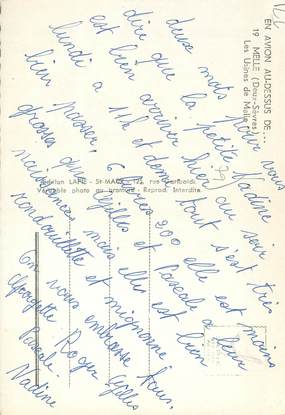 EN AVION AU-DESSUS DE...
19. MELLE (Deux-Sèvres)
Les Usines de Melle
deux mots pour vous
dire que la petite Nadine
est bien arrivée hier au soir
lundi à 11h et demi tout s'est très
bien passer. 6 livres 200 elle est moins
grosse que Gilles et Pascale à leur
naissances mais elle est bien
rondouillette et mignonne. tous
on vous embrasse
Georgette Roger Gilles
Pascale
Nadine
LAPIE - St-MAUR
Véritable photo au bromure - Reprod. Interdite